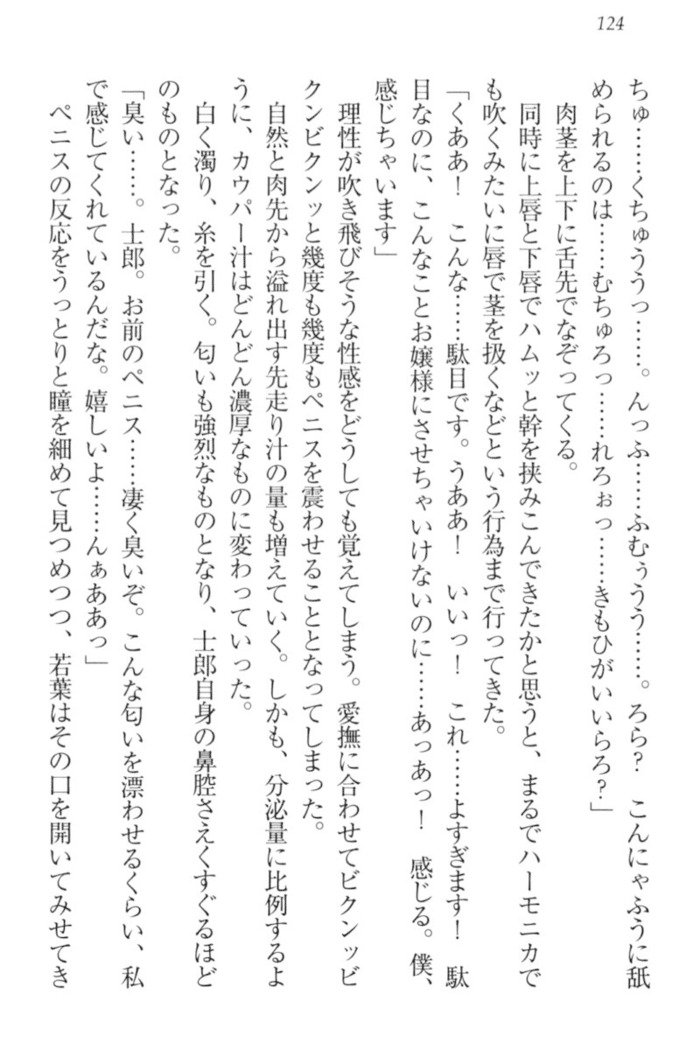 124
ちゅ……くちゅううっ……。んっふ……ふむぅうう……。ろら？　こんにゃふうに舐
められるのは……むちゅろっ……れろぉっ……きもひがいいらろ？」
　肉茎を上下に舌先でなぞってくる。
　同時に上唇と下唇でハムッと幹を挟みこんできたかと思うと、まるでハーモニカで
も吹くみたいに唇で茎を扱くなどという行為まで行ってきた。
「くああ！　こんな……駄目です。うああ！　いいっ！　これ……よすぎます！　駄
目なのに、こんなことお嬢様にさせちゃいけないのに……あっあっ！　感じる。僕、
感じちゃいます」
　理性が吹き飛びそうな性感をどうしても覚えてしまう。愛撫に合わせてビクンッビ
クンビクンッと幾度も幾度もペニスを震わせることとなってしまった。
　自然と肉先から溢れ出す先走り汁の量も増えていく。しかも、分泌量に比例するよ
うに、カウパー汁はどんどん濃厚なものに変わっていった。
　白く濁り、糸を引く。匂いも強烈なものとなり、士郎自身の鼻腔さえくすぐるほど
のものとなった。
「臭い……。士郎。お前のペニス……凄く臭いぞ。こんな匂いを漂わせるくらい、私
で感じてくれているんだな。嬉しいよ……んぁああっ」
　ペニスの反応をうっとりと瞳を細めて見つめつつ、若葉はその口を開いてみせてき